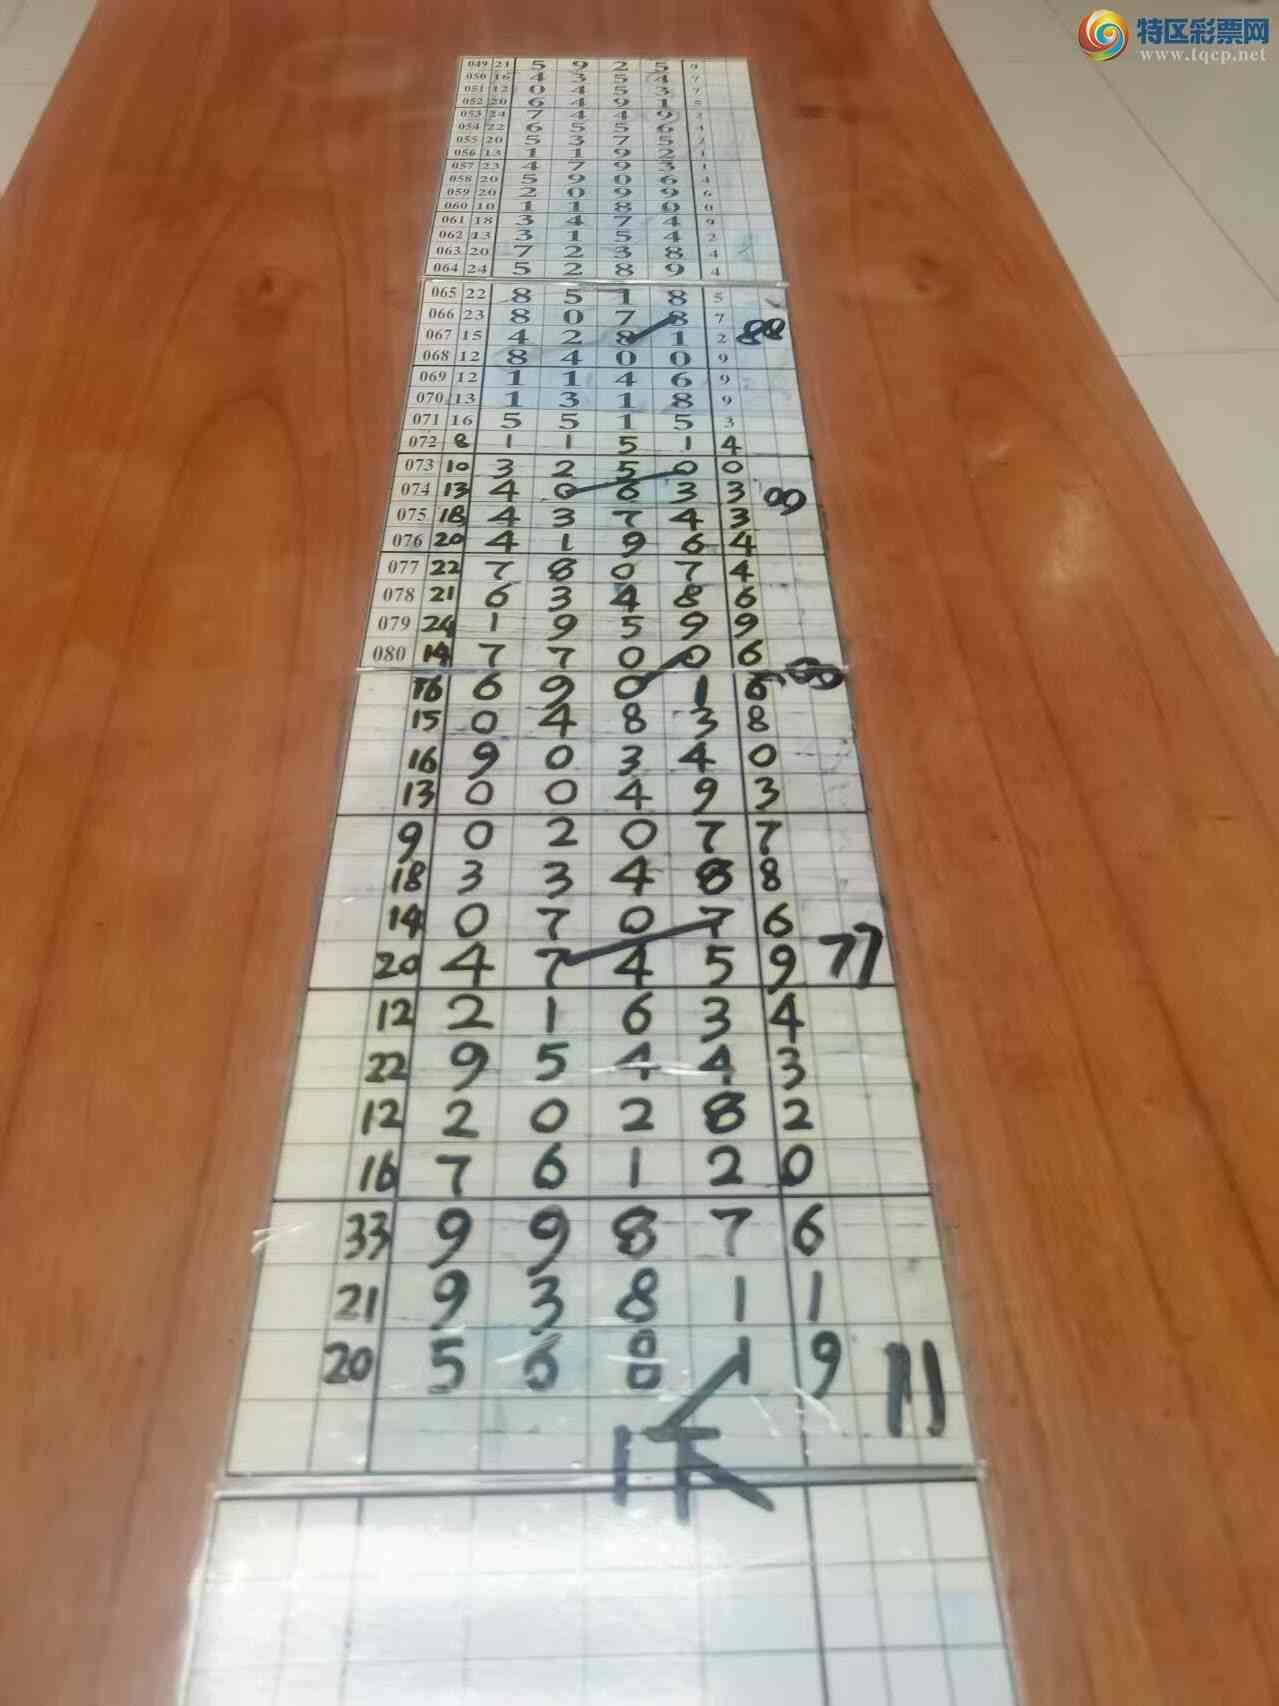 特区彩票网
www.tqcp.net
049 21 5 9 2 5 9
050 16 4 3 5 4 7
051 12 0 4 5 3 7
052 20 6 4 9 1 5
053 24 7 4 4 9
054 22 6 5 5 6
055 20 5 3 7 5
056 13 1 1 9 2
057 23 4 7 9 3 1
058 20 5 9 0 6 4
059 20 2 0 9 9 6
060 10 1 1 8 0 0
061 18 3 4 7 4 9
062 13 3 1 5 4 2
063 20 7 2 3 8 4
064 24 5 2 8 9 4
065 22 8 5 1 8 5
066 23 8 0 7 8 7
067 15 4 2 8 1 2 88
068 12 8 4 0 0 9
069 12 1 1 4 6 9
070 13 1 3 1 8 9
071 16 5 5 1 5 3
072 8 1 1 5 1 4
073 10 3 2 5 0 0
074 13 4 0 6 3 3 00
075 18 4 3 7 4 3
076 20 4 1 9 6 4
077 22 7 8 0 7 4
078 21 6 3 4 8 6
079 24 1 9 5 9 9
080 14 7 7 0 0 6
16 6 9 0 1 6 00
15 0 4 8 3 8
16 9 0 3 4 0
13 0 0 4 9 3
9 0 2 0 7 7
18 3 3 4 8 8
14 0 7 0 7 6
20 4 7 4 5 9 77
12 2 1 6 3 4
22 9 5 4 4 3
12 2 0 2 8 2
16 7 6 1 2 0
33 9 9 8 7 6
21 9 3 8 1 1
20 5 6 8 1 9 11